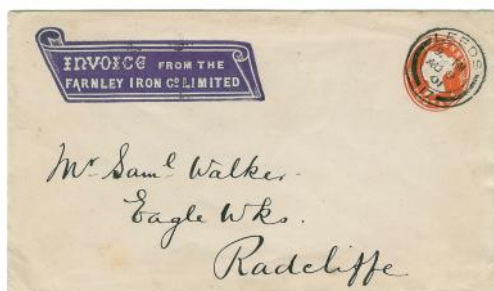 INVOICE FROM THE
FARNLEY IRON Co. LIMITED
LEEDS
AU
01
17
Mr. Saml. Walker.
Eagle Wks.
Radcliffe